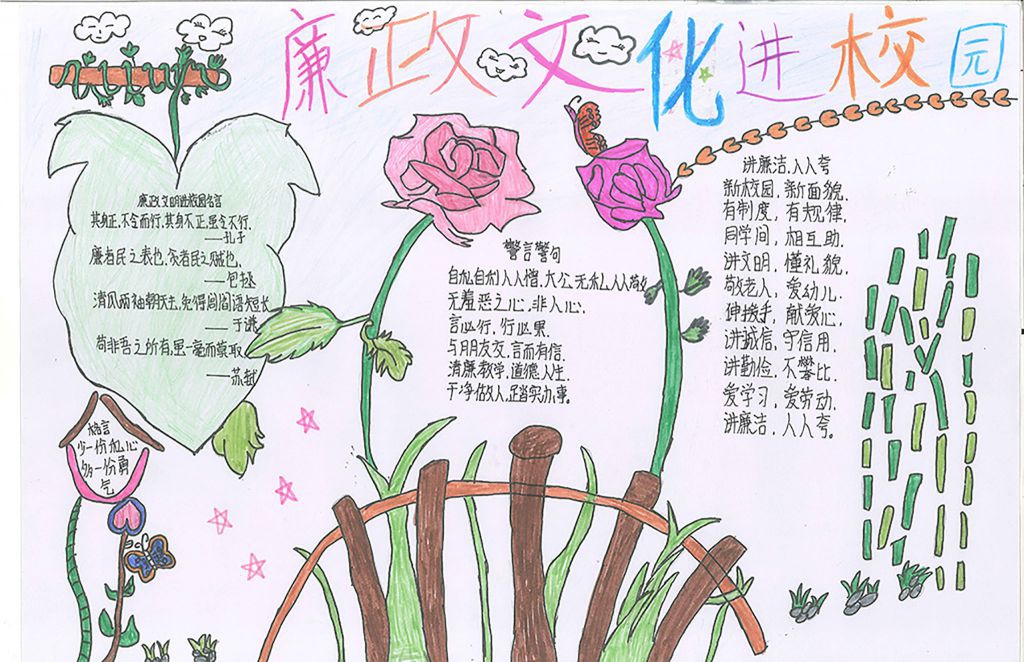 廉政文化进校园
廉政文明进校园名言
其身正,不令而行,其身不正,虽令不行.
——孔子
廉者民之表也,贪者民之贼也.
——包拯
清风两袖朝天去,免得闾阎话短长
——于谦
苟非吾之所有,虽一毫而莫取
——苏轼
格言
少一份私心
多一份勇
气
警言警句
自私自利人人憎,大公无私人人敬
无羞恶之心,非人心;
言必行,行必果.
与朋友交,言而有信.
清廉教学,道德人生.
干净做人,踏实办事。
讲廉洁,人人夸
新校园,新面貌.
有制度,有规律.
同学间,相互助.
讲文明,懂礼貌.
敬老人,爱幼儿.
伸援手,献爱心.
讲诚信,守信用.
讲勤俭,不攀比.
爱学习,爱劳动.
讲廉洁,人人夸。